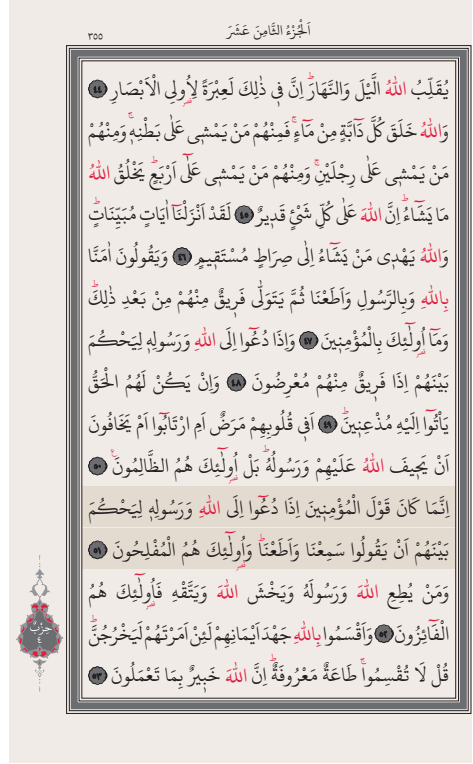 اَلْجُزْءُ الثَّامِنَ عَشَرَ
٣٥٥
يُقَلِّبُ اللّٰهُ الَّيْلَ وَالنَّهَارَۜ اِنَّ ف۪ي ذٰلِكَ لَعِبْرَةً لِاُو۬لِي الْاَبْصَارِ ﴿٤٤﴾
وَاللّٰهُ خَلَقَ كُلَّ دَٓابَّةٍ مِنْ مَٓاءٍۚ فَمِنْهُمْ مَنْ يَمْش۪ي عَلٰى بَطْنِه۪ۚ وَمِنْهُمْ
مَنْ يَمْش۪ي عَلٰى رِجْلَيْنِۚ وَمِنْهُمْ مَنْ يَمْش۪ي عَلٰٓى اَرْبَعٍۜ يَخْلُقُ اللّٰهُ
مَا يَشَٓاءُۜ اِنَّ اللّٰهَ عَلٰى كُلِّ شَيْءٍ قَد۪يرٌ ﴿٤٥﴾ لَقَدْ اَنْزَلْنَٓا اٰيَاتٍ مُبَيِّنَاتٍۜ
وَاللّٰهُ يَهْد۪ي مَنْ يَشَٓاءُ اِلٰى صِرَاطٍ مُسْتَق۪يمٍ ﴿٤٦﴾ وَيَقُولُونَ اٰمَنَّا
بِاللّٰهِ وَبِالرَّسُولِ وَاَطَعْنَا ثُمَّ يَتَوَلّٰى فَر۪يقٌ مِنْهُمْ مِنْ بَعْدِ ذٰلِكَۜ
وَمَٓا اُو۬لٰٓئِكَ بِالْمُؤْمِن۪ينَ ﴿٤٧﴾ وَاِذَا دُعُٓوا اِلَى اللّٰهِ وَرَسُولِه۪ لِيَحْكُمَ
بَيْنَهُمْ اِذَا فَر۪يقٌ مِنْهُمْ مُعْرِضُونَ ﴿٤٨﴾ وَاِنْ يَكُنْ لَهُمُ الْحَقُّ
يَأْتُٓوا اِلَيْهِ مُذْعِن۪ينَۜ ﴿٤٩﴾ اَف۪ي قُلُوبِهِمْ مَرَضٌ اَمِ ارْتَابُٓوا اَمْ يَخَافُونَ
اَنْ يَح۪يفَ اللّٰهُ عَلَيْهِمْ وَرَسُولُهُۜ بَلْ اُو۬لٰٓئِكَ هُمُ الظَّالِمُونَ۟ ﴿٥٠﴾
اِنَّمَا كَانَ قَوْلَ الْمُؤْمِن۪ينَ اِذَا دُعُٓوا اِلَى اللّٰهِ وَرَسُولِه۪ لِيَحْكُمَ
بَيْنَهُمْ اَنْ يَقُولُوا سَمِعْنَا وَاَطَعْنَاۜ وَاُو۬لٰٓئِكَ هُمُ الْمُفْلِحُونَ ﴿٥١﴾
وَمَنْ يُطِعِ اللّٰهَ وَرَسُولَهُ وَيَخْشَ اللّٰهَ وَيَتَّقْهِ فَاُو۬لٰٓئِكَ هُمُ
الْفَٓائِزُونَ ﴿٥٢﴾ وَاَقْسَمُوا بِاللّٰهِ جَهْدَ اَيْمَانِهِمْ لَئِنْ اَمَرْتَهُمْ لَيَخْرُجُنَّۜ
قُلْ لَا تُقْسِمُواۚ طَاعَةٌ مَعْرُوفَةٌۜ اِنَّ اللّٰهَ خَب۪يرٌ بِمَا تَعْمَلُونَ ﴿٥٣﴾
حِزْب
٤